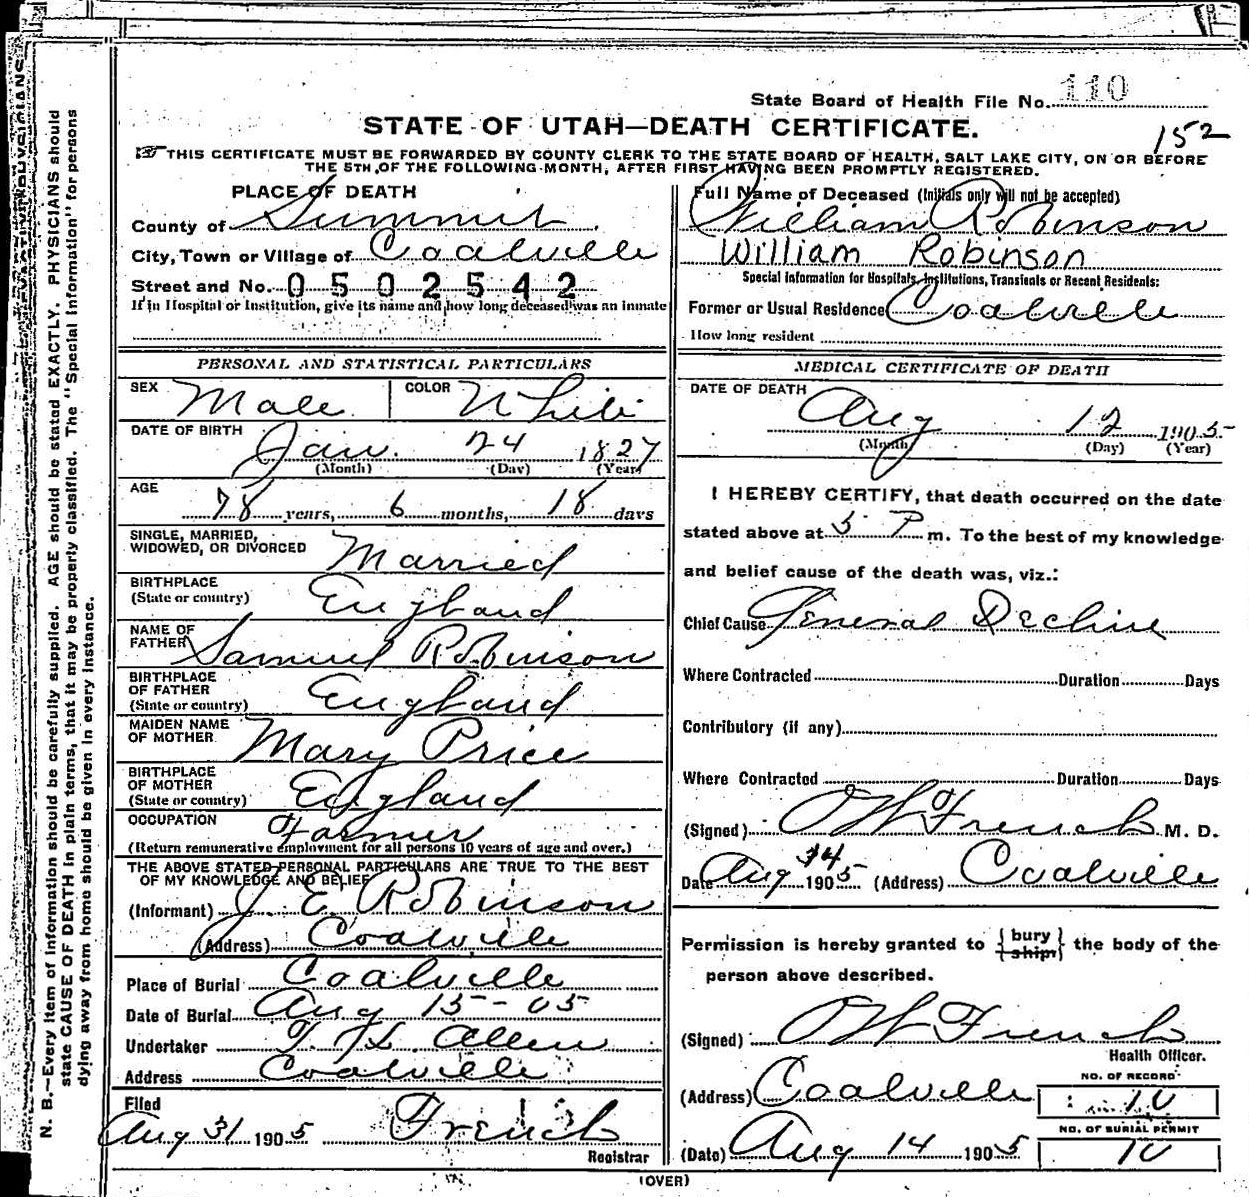 State Board of Health File No. 110
STATE OF UTAH—DEATH CERTIFICATE.
152
THIS CERTIFICATE MUST BE FORWARDED BY COUNTY CLERK TO THE STATE BOARD OF HEALTH, SALT LAKE CITY, ON OR BEFORE
THE 5TH OF THE FOLLOWING MONTH, AFTER FIRST HAVING BEEN PROMPTLY REGISTERED.
PLACE OF DEATH
County of Summit
City, Town or Village of Coalville
Street and No. 0502542
If in Hospital or Institution, give its name and how long deceased was an inmate
PERSONAL AND STATISTICAL PARTICULARS
SEX Male COLOR White
DATE OF BIRTH Jan. 24 1827
(Month) (Day) (Year)
AGE
78 years, 6 months, 18 days
SINGLE, MARRIED,
WIDOWED, OR DIVORCED Married
BIRTHPLACE
(State or country) England
NAME OF
FATHER Samuel Robinson
BIRTHPLACE
OF FATHER
(State or country) England
MAIDEN NAME
OF MOTHER Mary Price
BIRTHPLACE
OF MOTHER
(State or country) England
OCCUPATION Farmer
(Return remunerative employment for all persons 10 years of age and over.)
THE ABOVE STATED PERSONAL PARTICULARS ARE TRUE TO THE BEST
OF MY KNOWLEDGE AND BELIEF
(Informant) J. E. Robinson
(Address) Coalville
Place of Burial Coalville
Date of Burial Aug 15-05
Undertaker Allen
Address Coalville
Filed
Aug 31 1905 French
Registrar
Full Name of Deceased (Initials only will not be accepted)
William Robinson
William Robinson
Special Information for Hospitals, Institutions, Transients or Recent Residents:
Former or Usual Residence Coalville
How long resident
MEDICAL CERTIFICATE OF DEATH
DATE OF DEATH
Aug 12 1905
(Month) (Day) (Year)
I HEREBY CERTIFY, that death occurred on the date
stated above at 5 P m. To the best of my knowledge
and belief cause of the death was, viz.:
Chief Cause General Decline
Where Contracted Duration Days
Contributory (if any)
Where Contracted Duration Days
(Signed) French M. D.
Date Aug 14 1905 (Address) Coalville
Permission is hereby granted to {bury ship} the body of the
person above described.
(Signed) French
Health Officer.
(Address) Coalville
NO. OF RECORD
10
NO. OF BURIAL PERMIT
10
(Date) Aug 14 1905
(OVER)
N. B.—Every item of information should be carefully supplied. AGE should be stated EXACTLY. PHYSICIANS should
state CAUSE OF DEATH in plain terms, that it may be properly classified. The "Special Information" for persons
dying away from home should be given in every instance.